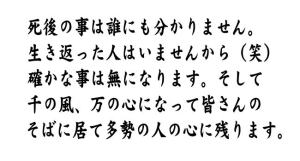 死後の事は誰にも分かりません。
生き返った人はいませんから（笑）
確かな事は無になります。そして
千の風、万の心になって皆さんの
そばに居て多勢の人の心に残ります。